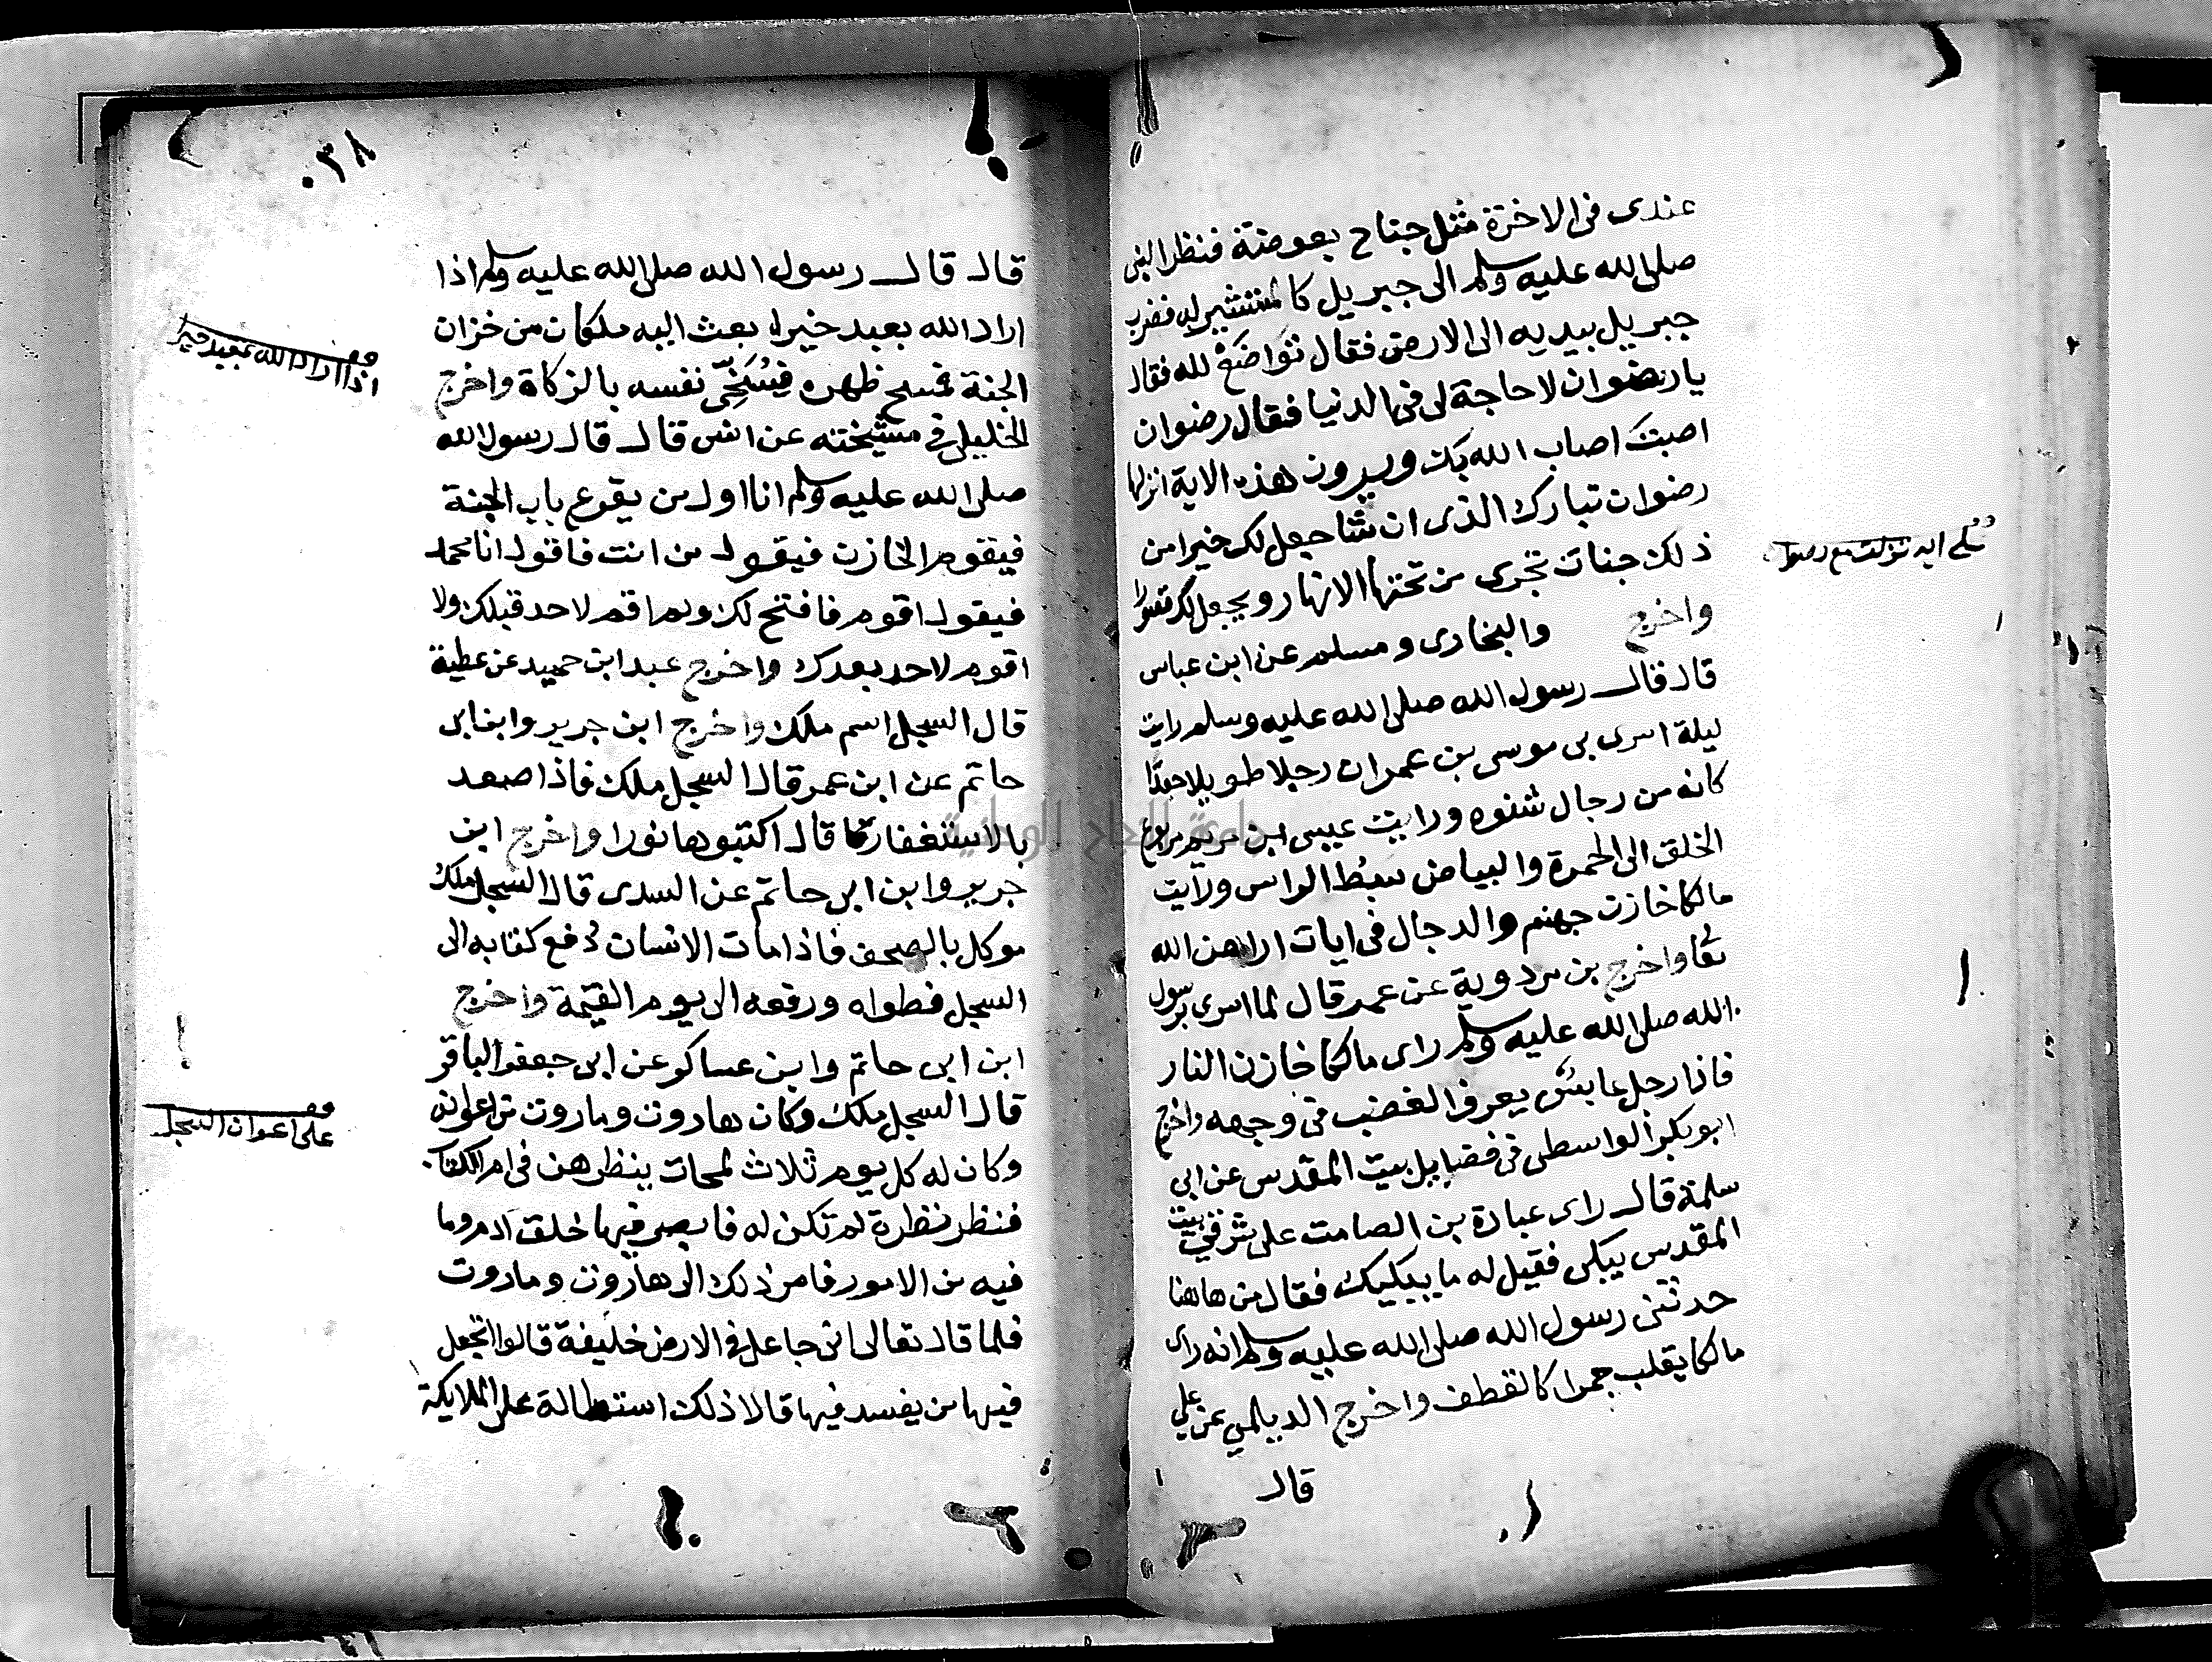 عندى فى الاخرة مثل جناح بعوضة فنظر النبى
صلى الله عليه وسلم الى جبريل كالمستشير له فضرب
جبريل بيديه الى الارض فقال تواضع لله فقال
يا رضوان لا حاجة لى فى الدنيا فقال رضوان
اصبت اصاب الله بك ويرون هذه الاية انزلها
رضوان تبارك الذى ان شا جعل لك خيرا من
ذلك جنات تجرى من تحتها الانهار ويجعل لك قصورا
على اية نزلت مع رضوان
واخرج والبخارى ومسلم عن ابن عباس
قال قال رسول الله صلى الله عليه وسلم رايت
ليلة اسرى بى موسى بن عمران رجلا طويلا جعدا
كانه من رجال شنوه ورايت عيسى ابن مريم مربوع
الخلق الى الحمرة والبياض سبط الراس ورايت
مالكا خازن جهنم والدجال فى ايات اراهن الله
تعا واخرج بن مردوية عن عمر قال لما اسرى برسول
الله صلى الله عليه وسلم راى مالكا خازن النار
فاذا رجل عابس يعرف الغضب فى وجهه واخرج
ابو بكر الواسطى فى فضايل بيت المقدس عن ابى
سلمة قال راى عبادة بن الصامت على شرفى بيت
المقدس يبكى فقيل له ما يبكيك فقال من هاهنا
حدثنى رسول الله صلى الله عليه وسلم انه راى
مالكا يقلب جمرا كالقطف واخرج الديلمي عن على
قال
٠٣٨
قال قال رسول الله صلى الله عليه وسلم اذا
اراد الله بعبد خيرا بعث اليه ملكان من خزان
قف
اذا اراد الله بعبد خيرا
الجنة فمسح ظهره فيسخى نفسه بالزكاة واخرج
الخليلى فى مشيخته عن انس قال قال رسول الله
صلى الله عليه وسلم انا اول من يقرع باب الجنة
فيقوم الخازن فيقول من انت فاقول انا محمد
فيقول اقوم فافتح لك ولم اقم لاحد قبلك ولا
اقوم لاحد بعدك واخرج عبد ابن حميد عن عطية
قال السجل اسم ملك واخرج ابن جرير وابن ابى
حاتم عن ابن عمر قال السجل ملك فاذا صعد
بالاستغفار قال اكتبوها نورا واخرج ابن
جرير وابن ابى حاتم عن السدى قال السجل ملك
موكل بالصحف فاذا مات الانسان دفع كتابه الى
السجل فطواه ورفعه الى يوم القيمة واخرج
ابن ابى حاتم وابن عساكر عن ابى جعفر الباقر
قال السجل ملك وكان هاروت وماروت من اعوانه
قف
على اعوان السجل
وكان له كل يوم ثلاث لمحات ينظرهن فى ام الكتاب
فنظر نظرة لم تكن له فابصر فيها خلق ادم وما
فيه من الامور فاسر ذلك الى هاروت وماروت
فلما قال تعالى انى جاعل فى الارض خليفة قالوا اتجعل
فيها من يفسد فيها قالا ذلك استطالة على الملايكة
جامعة النجاح الوطنية